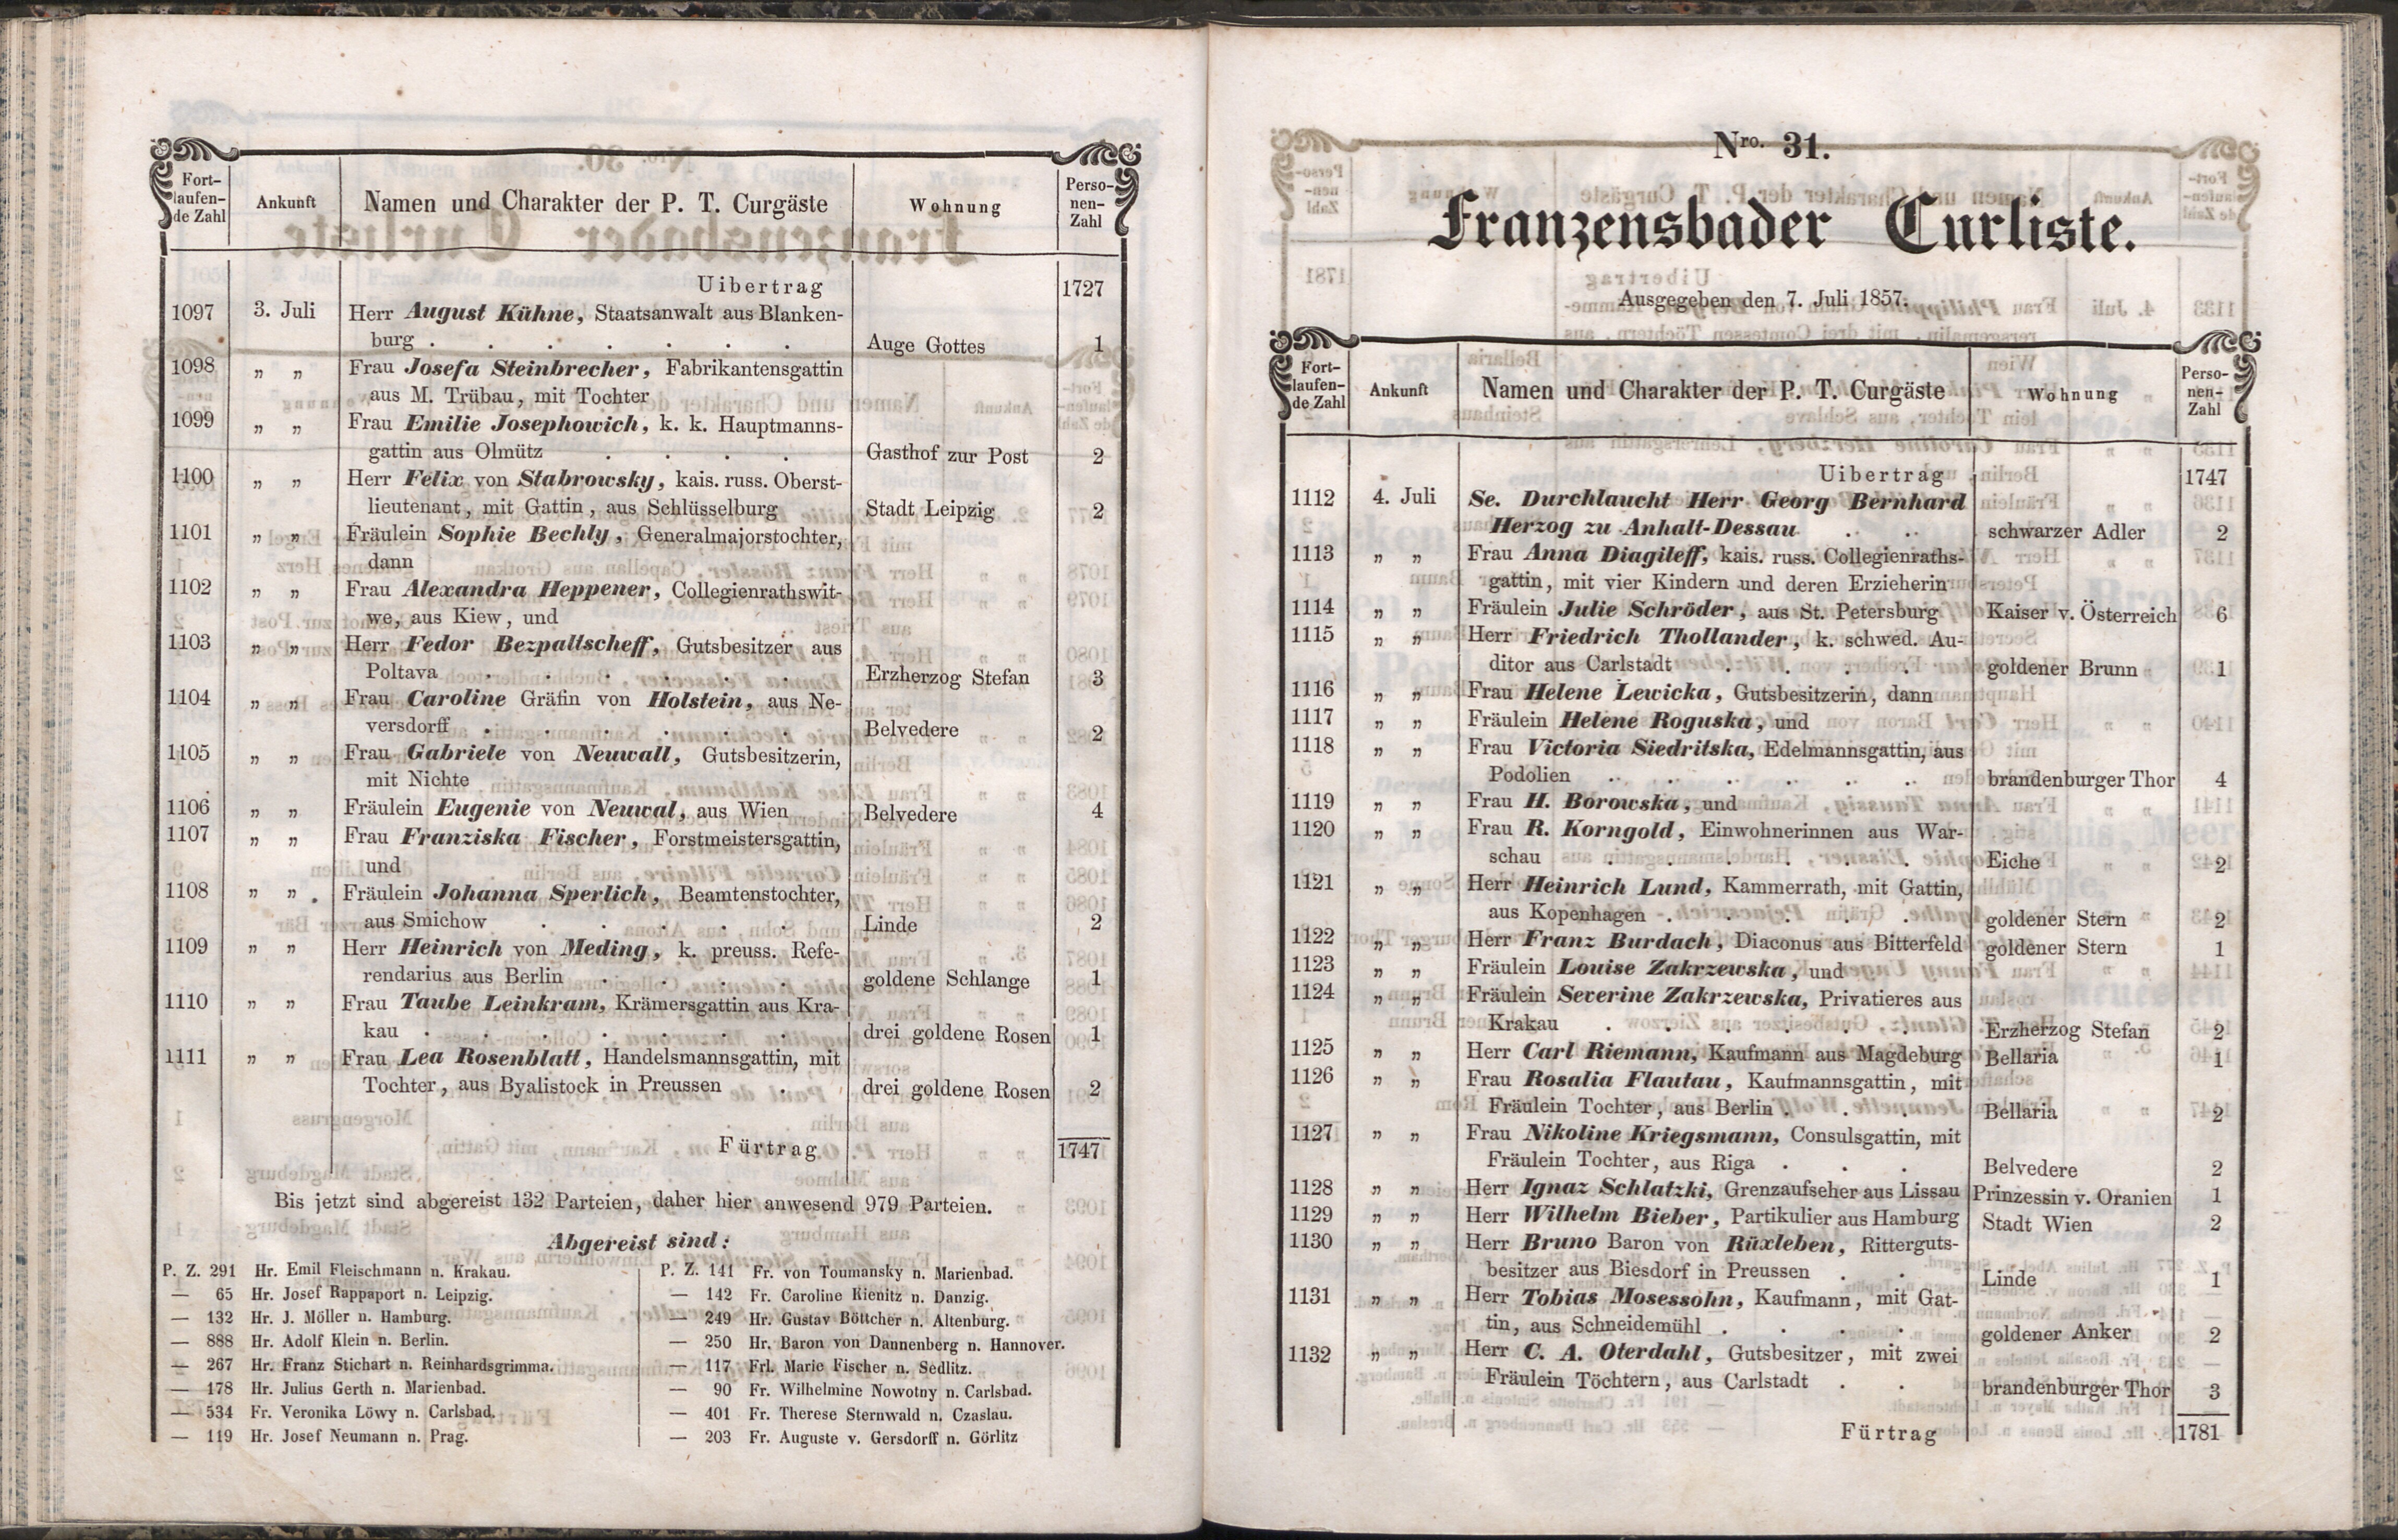 Fort-
laufen-
de Zahl
Ankunft
Namen und Charakter der P. T. Curgäste
Wohnung
Perso-
nen-
Zahl
Uibertrag 1727
1097 3. Juli Herr August Kühne, Staatsanwalt aus Blanken-
burg . . . . . . . Auge Gottes 1
1098 „ „ Frau Josefa Steinbrecher, Fabrikantensgattin
aus M. Trübau, mit Tochter
1099 „ „ Frau Emilie Josephowich, k. k. Hauptmanns-
gattin aus Olmütz . . . . Gasthof zur Post 2
1100 „ „ Herr Felix von Stabrowsky, kais. russ. Oberst-
lieutenant, mit Gattin, aus Schlüsselburg Stadt Leipzig 2
1101 „ „ Fräulein Sophie Bechly, Generalmajorstochter,
dann
1102 „ „ Frau Alexandra Heppener, Collegienrathswit-
we, aus Kiew, und
1103 „ „ Herr Fedor Bezpaltscheff, Gutsbesitzer aus
Poltava . . . . . . Erzherzog Stefan 3
1104 „ „ Frau Caroline Gräfin von Holstein, aus Ne-
versdorff . . . . . . Belvedere 2
1105 „ „ Frau Gabriele von Neuwall, Gutsbesitzerin,
mit Nichte
1106 „ „ Fräulein Eugenie von Neuwal, aus Wien Belvedere 4
1107 „ „ Frau Franziska Fischer, Forstmeistersgattin,
und
1108 „ „ Fräulein Johanna Sperlich, Beamtenstochter,
aus Smichow . . . . . Linde 2
1109 „ „ Herr Heinrich von Meding, k. preuss. Refe-
rendarius aus Berlin . . . . goldene Schlange 1
1110 „ „ Frau Taube Leinkram, Krämersgattin aus Kra-
kau . . . . . . . drei goldene Rosen 1
1111 „ „ Frau Lea Rosenblatt, Handelsmannsgattin, mit
Tochter, aus Byalistock in Preussen . drei goldene Rosen 2
Fürtrag 1747
Bis jetzt sind abgereist 132 Parteien, daher hier anwesend 979 Parteien.
Abgereist sind:
P. Z. 291 Hr. Emil Fleischmann n. Krakau.
— 65 Hr. Josef Rappaport n. Leipzig.
— 132 Hr. J. Möller n. Hamburg.
— 888 Hr. Adolf Klein n. Berlin.
— 267 Hr. Franz Stichart n. Reinhardsgrimma.
— 178 Hr. Julius Gerth n. Marienbad.
— 534 Fr. Veronika Löwy n. Carlsbad.
— 119 Hr. Josef Neumann n. Prag.
P. Z. 141 Fr. von Toumansky n. Marienbad.
— 142 Fr. Caroline Kienitz n. Danzig.
— 249 Hr. Gustav Böttcher n. Altenburg.
— 250 Hr. Baron von Dannenberg n. Hannover.
— 117 Frl. Marie Fischer n. Sedlitz.
— 90 Fr. Wilhelmine Nowotny n. Carlsbad.
— 401 Fr. Therese Sternwald n. Czaslau.
— 203 Fr. Auguste v. Gersdorff n. Görlitz
Nro. 31.
Franzensbader Curliste.
Ausgegeben den 7. Juli 1857.
Fort-
laufen-
de Zahl
Ankunft
Namen und Charakter der P. T. Curgäste
Wohnung
Perso-
nen-
Zahl
Uibertrag 1747
1112 4. Juli Se. Durchlaucht Herr Georg Bernhard
Herzog zu Anhalt-Dessau . . schwarzer Adler 2
1113 „ „ Frau Anna Diagileff, kais. russ. Collegienraths-
gattin, mit vier Kindern und deren Erzieherin
1114 „ „ Fräulein Julie Schröder, aus St. Petersburg Kaiser v. Österreich 6
1115 „ „ Herr Friedrich Thollander, k. schwed. Au-
ditor aus Carlstadt . . . . goldener Brunn 1
1116 „ „ Frau Helene Lewicka, Gutsbesitzerin, dann
1117 „ „ Fräulein Helene Roguska, und
1118 „ „ Frau Victoria Siedritska, Edelmannsgattin, aus
Podolien . . . . . . brandenburger Thor 4
1119 „ „ Frau H. Borowska, und
1120 „ „ Frau R. Korngold, Einwohnerinnen aus War-
schau . . . . . . Eiche 2
1121 „ „ Herr Heinrich Lund, Kammerrath, mit Gattin,
aus Kopenhagen . . . . . goldener Stern 2
1122 „ „ Herr Franz Burdach, Diaconus aus Bitterfeld goldener Stern 1
1123 „ „ Fräulein Louise Zakrzewska, und
1124 „ „ Fräulein Severine Zakrzewska, Privatieres aus
Krakau . . . . . . Erzherzog Stefan 2
1125 „ „ Herr Carl Riemann, Kaufmann aus Magdeburg Bellaria 1
1126 „ „ Frau Rosalia Flautau, Kaufmannsgattin, mit
Fräulein Tochter, aus Berlin . . . Bellaria 2
1127 „ „ Frau Nikoline Kriegsmann, Consulsgattin, mit
Fräulein Tochter, aus Riga . . . Belvedere 2
1128 „ „ Herr Ignaz Schlatzki, Grenzaufseher aus Lissau Prinzessin v. Oranien 1
1129 „ „ Herr Wilhelm Bieber, Partikulier aus Hamburg Stadt Wien 2
1130 „ „ Herr Bruno Baron von Rüxleben, Ritterguts-
besitzer aus Biesdorf in Preussen . . Linde 1
1131 „ „ Herr Tobias Mosessohn, Kaufmann, mit Gat-
tin, aus Schneidemühl . . . . goldener Anker 2
1132 „ „ Herr C. A. Oterdahl, Gutsbesitzer, mit zwei
Fräulein Töchtern, aus Carlstadt . . brandenburger Thor 3
Fürtrag 1781